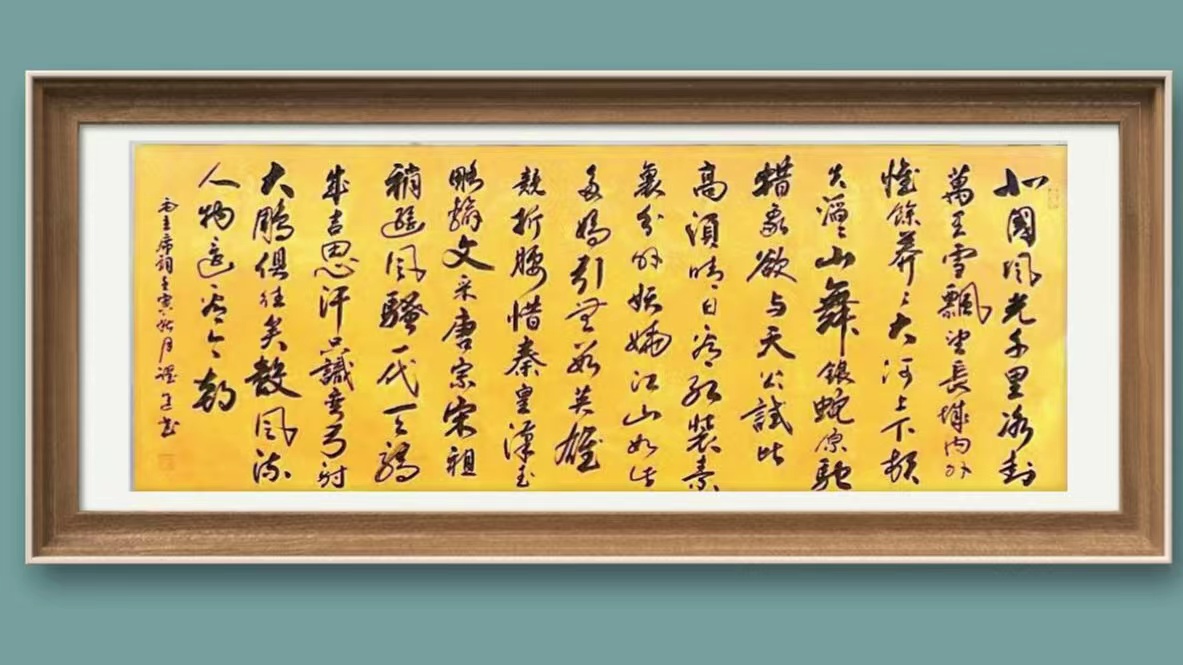 北國風光千里冰封
萬里雪飄望長城内外
惟餘莽〻大河上下頓
失滔〻山舞銀蛇原馳
蜡象欲与天公試比
高須晴日看紅裝素
裹分外妖嬈江山如此
多嬌引無數英雄
競折腰惜秦皇漢武
略輸文采唐宗宋祖
稍遜風騷一代天驕
成吉思汗只識彎弓射
大鵰俱往矣數風流
人物還看今朝
毛主席詞壬寅秋月書